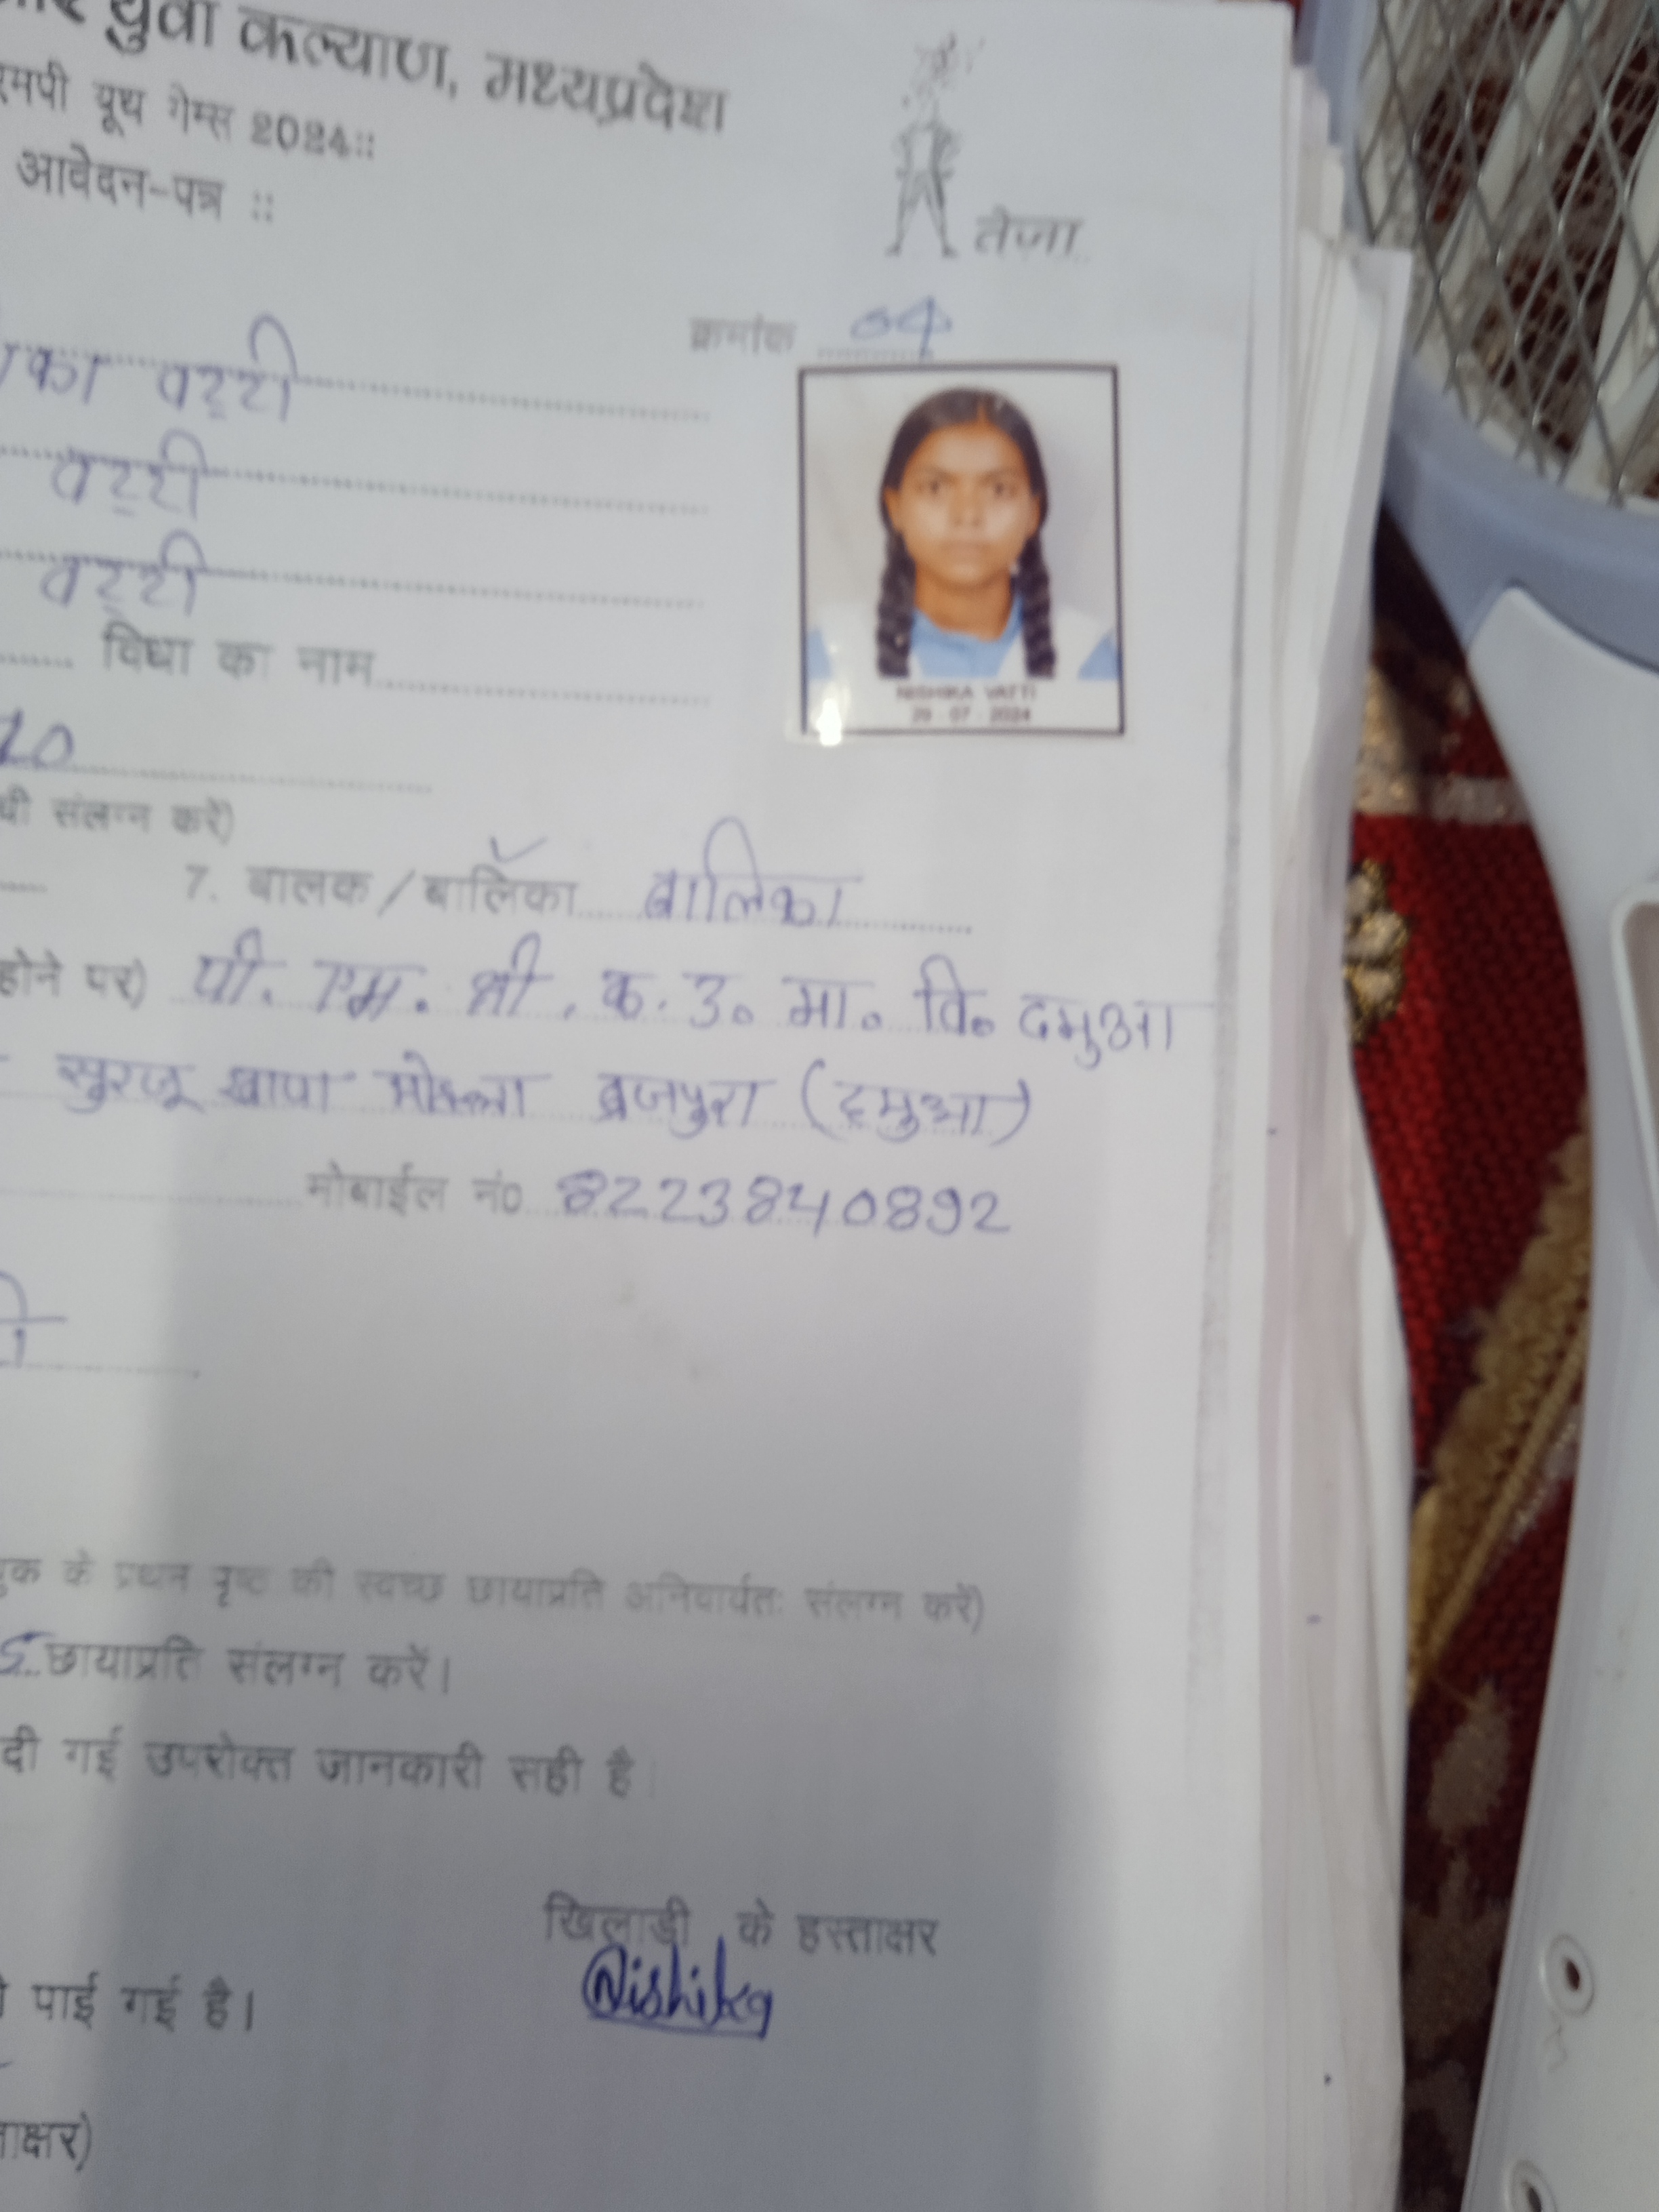 और युवा कल्याण, मध्यप्रदेश
एमपी यूथ गेम्स 2024::
आवेदन-पत्र ::
तेजा
क्रमांक 04
का वट्टी
वट्टी
वट्टी
विधा का नाम
NISHIKA VATTI
29-07-2024
10
संलग्न करें)
7. बालक/बालिका बालिका
होने पर) पी. एम. श्री. क. उ. मा. वि. दमुआ
सुरजू खापा मोहल्ला ब्रजपुरा (दमुआ)
मोबाईल नं0 8223840892
के प्रथम पृष्ठ की स्वच्छ छायाप्रति अनिवार्यतः संलग्न करें)
छायाप्रति संलग्न करें।
दी गई उपरोक्त जानकारी सही है
खिलाडी के हस्ताक्षर
Nishika
पाई गई है।